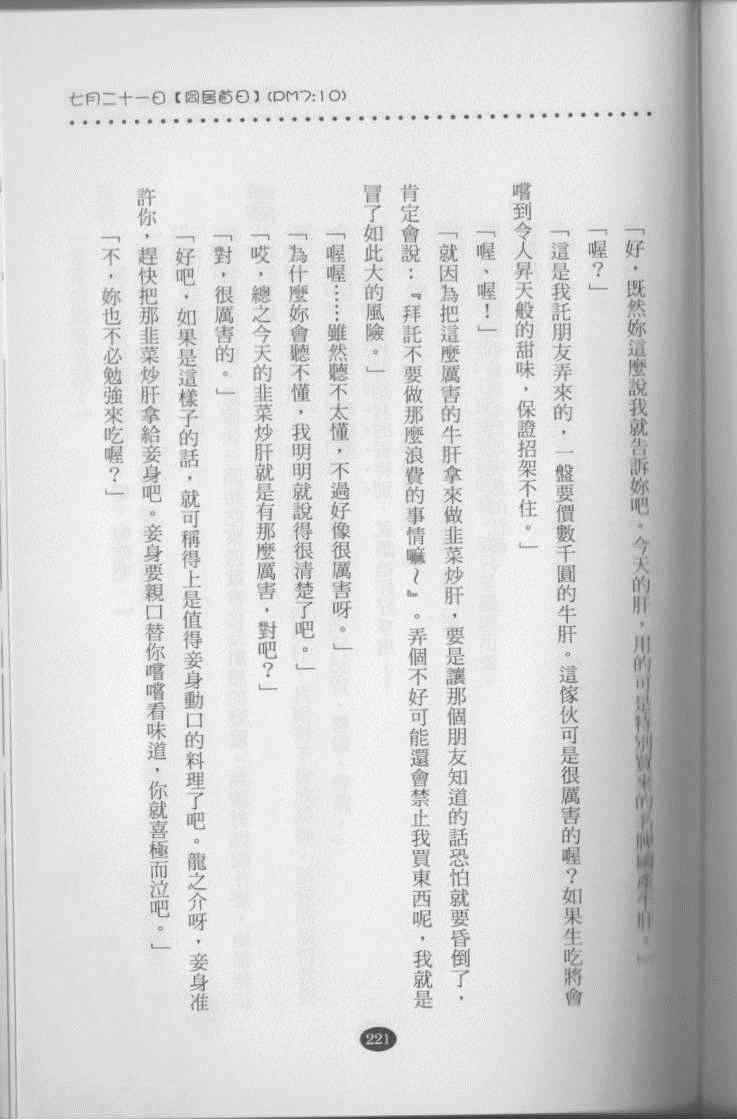 七月二十一日【同居首日】(PM7:10)
「好，既然妳這麼說我就告訴妳吧。今天的肝，用的可是特別買來的
「喔？」
「這是我託朋友弄來的，一盤要價數千圓的牛肝。這傢伙可是很厲害的喔？如果生吃將會
嚐到令人昇天般的甜味，保證招架不住。」
「喔、喔！」
「就因為把這麼厲害的牛肝拿來做韭菜炒肝，要是讓那個朋友知道的話恐怕就要昏倒了，
肯定會說：『拜託不要做那麼浪費的事情嘛～』。弄個不好可能還會禁止我買東西呢，我就是
冒了如此大的風險。」
「喔喔……雖然聽不太懂，不過好像很厲害呀。」
「為什麼妳會聽不懂，我明明就說得很清楚了吧。」
「哎，總之今天的韭菜炒肝就是有那麼厲害，對吧？」
「對，很厲害的。」
「好吧，如果是這樣子的話，就可稱得上是值得妾身動口的料理了吧。龍之介呀，妾身准
許你，趕快把那韭菜炒肝拿給妾身吧。妾身要親口替你嚐嚐看味道，你就喜極而泣吧。」
「不，妳也不必勉強來吃喔？」
221